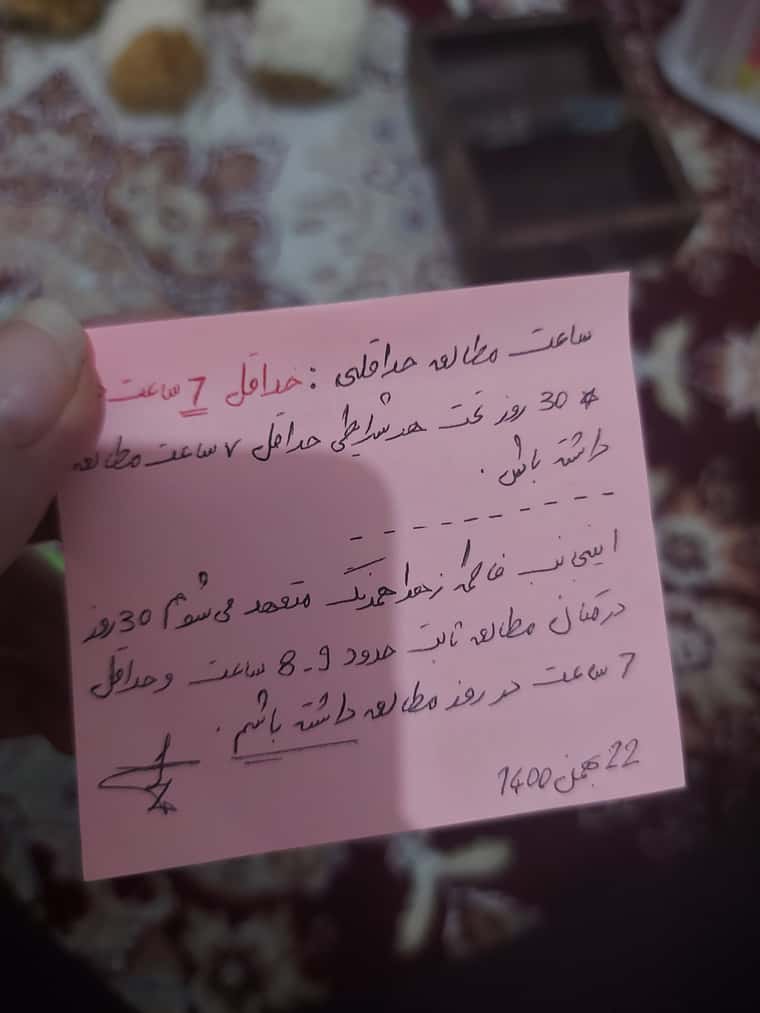 ساعت مطالعه حداقلی : حداقل 7 ساعت
* 30 روز تحت هر شرایطی حداقل ۷ ساعت مطالعه
داشته باش .
- - - - - - - - -
اینجانب فاطمه زهرا متعهد می شوم 30 روز
مطالعه ثابت حدود 9 - 8 ساعت و حداقل
7 ساعت در روز مطالعه داشته باشم .
22 بهمن 1400